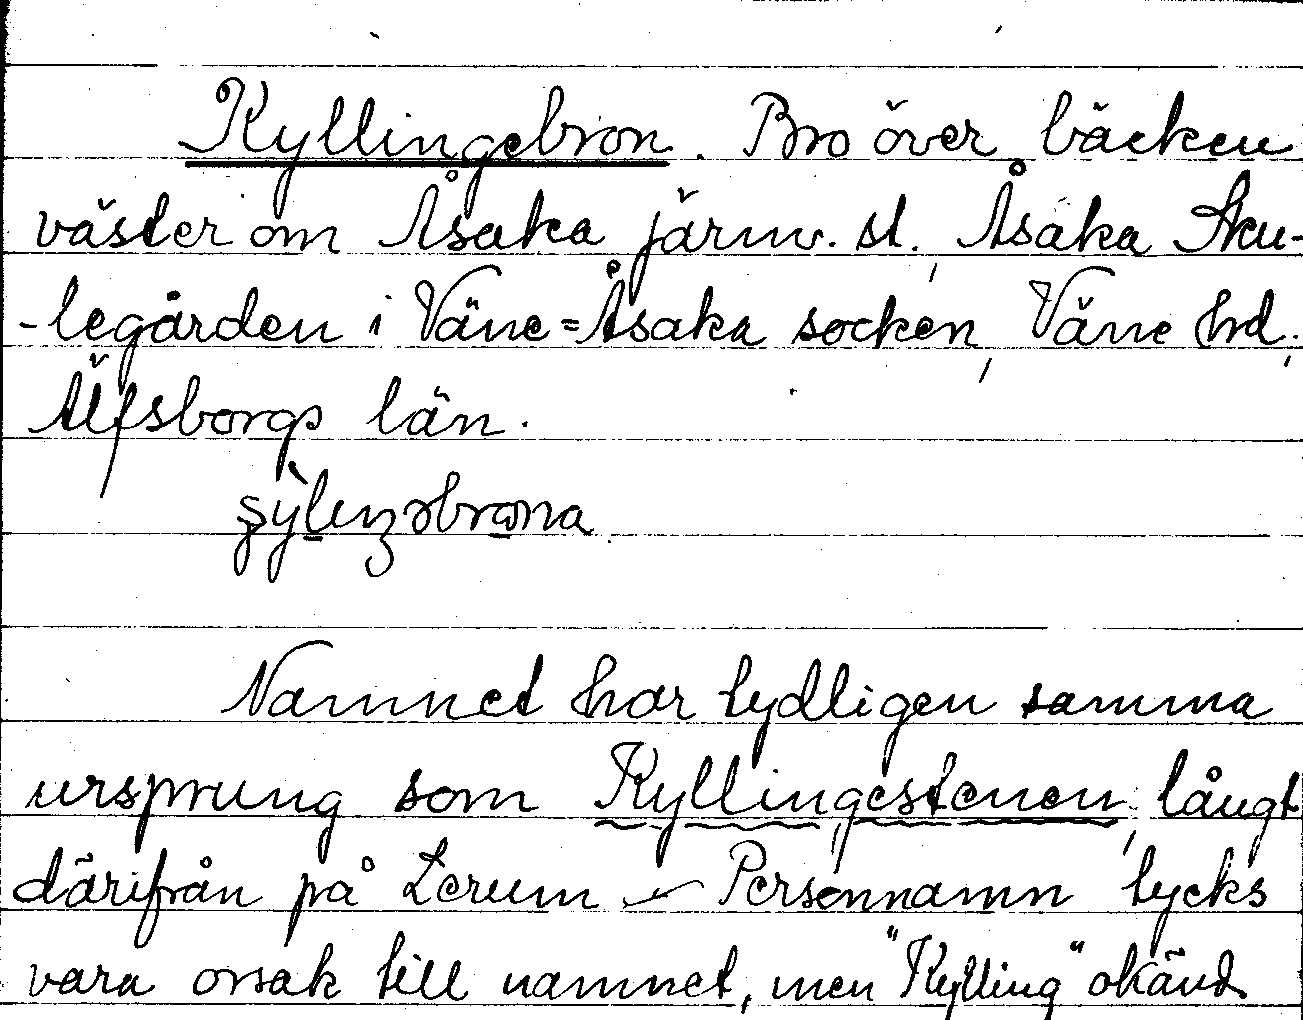 Kyllingebron. Bro över bäcken
väster om Åsaka järnv. st., Åsaka Sku-
-legården i Väne=Åsaka socken, Väne hd,
Älfsborgs län.
Namnet har tydligen samma
ursprung som Kyllingestenen, långt
därifrån på Lerum – Personnamn tycks
vara orsak till namnet, men "Kylling" okänd